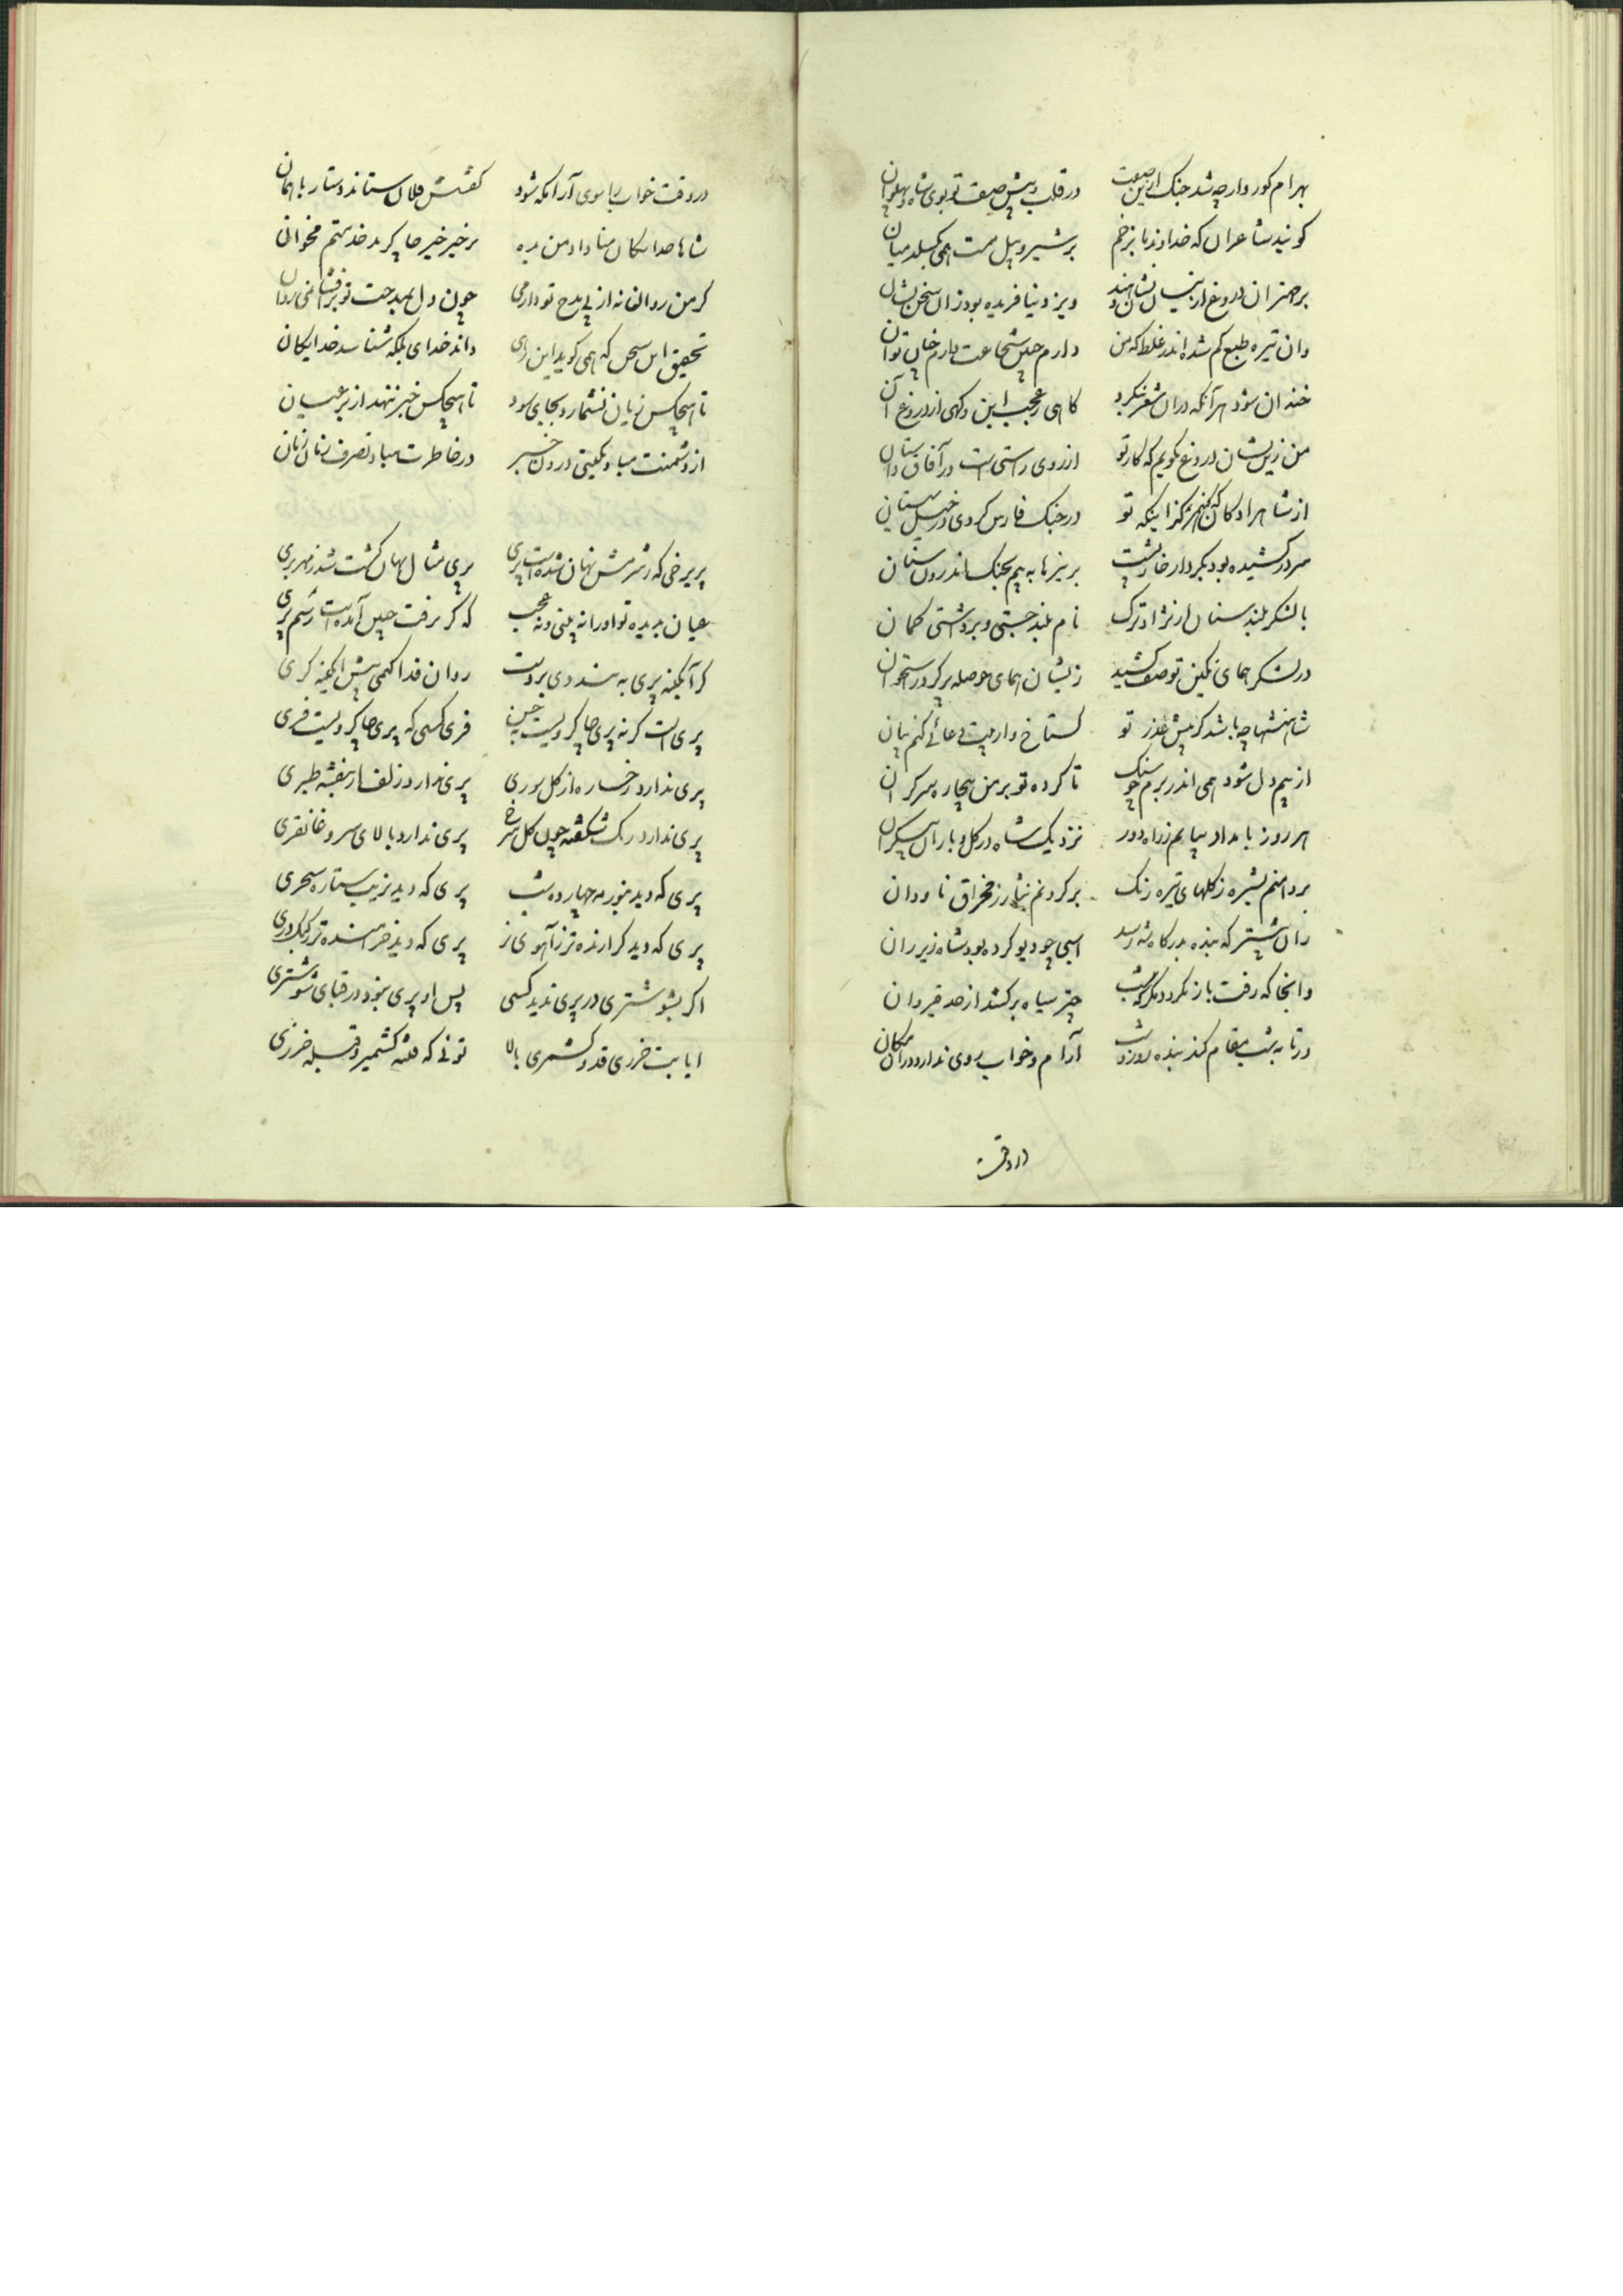 بهرام کور وار چه شد جنک را صفت در قلب پیش صف تو بوی شاه پهلوان
کویند شاعران که خداوند ما بزخم بر شیر و پیل مست همی بکسلد میان
ویزد نیافریده بود زان سخن نشان
وان تیره طبع کم شده اندر غلط که من دارم چنین شجاعت دارم چنان توان
خندان شود هر آنکه در ان شعر بنکرد کاهی ز عجب این و کهی از دروغ آن
من زین نشان دروغ نکویم که کار تو از روی راستی است در آفاق داستان
در جنک فارس کردی در خیل سیستان
سر در کشیده بود بکردار خارپشت بر نیزها به بیم بجنک اندرون سنان
با لشکر بلند سنان از نژاد ترک نام بلند جستی و برداشتی کمان
در لشکر همای نکین تو صف کشید زیشان همای حوصله پر کرد ز استخوان
شاهنشها چه باشد کر پیش عذر تو کستاخ وار بیت دعائی کنم بیان
از بیم دل شود همی اندر برم چو سنک تا کرده تو بر من بیچاره سر کران
هر روز بامداد بیایم ز راه دور نزدیک شاه در کل و باران بیکران
بر دامنم بشیزه ز کلهای تیره رنک بر کردنم نثار ز مخراق ناودان
زان پیشتر که بنده بدرکاه شه رسد اسبی چو دیو کرده بود شاه زیر ران
وانجا که رفت باز نکردد مکر که شب چتر سیاه برکشد از حد قیروان
ور تا به شب مقام کند بنده روز و شب آرام و خواب روی ندارد در آن مکان
در وقت
در وقت خواب را سوی آرامکه شود کفشش فلان ستاند و دستار باهمان
شاها خدایکان منا داد من بده بر خیر خیر چاکر بد خدمتم مخوان
کر من روان نه از پی مدح تو دارمی چون دل بمدحت تو برافشانمی روان
تحقیق این سخن که همی کوید این رهی داند خدای بلکه شناسد خدایکان
تا هیچکس زیان نشمارد بجای سود تا هیچکس خبر ننهد از بر عیان
از دشمنت مباد بکیتی درون خبر در خاطرت مباد تصرف زمان زمان
پریرخی که ز شرمش نهان شده است پری پری مثال نهان کشت شد ز مهر بری
عیان بدیده تو او را نه بینی و نه عجب که کر برفت چنین آمده است رسم پری
کر آبکینه پری به بندد وی بردست روان فدا کنمی پیش آبکینه کری
پری است کرنه پری چاکر ویست بحسن فری کسی که پری چاکر ویست فری
پری ندارد رخساره از کل سوری پری ندارد زلف از بنفشه طبری
پری ندارد رنک شکفته چون کل سرخ پری ندارد بالای سرو غاتفری
پری که دید بنور مه چهارده شب پری که دید بزیب ستاره سحری
پری که دید کرازنده تر ز آهوی نر پری که دید خرامنده تر ز کبک دری
اکر بشوشتری در پری ندید کسی پس او پری بنود در قبای شوشتری
ایا بت خزری قد و کشمری بالا توئی که فتنه کشمیر و قبله خزری